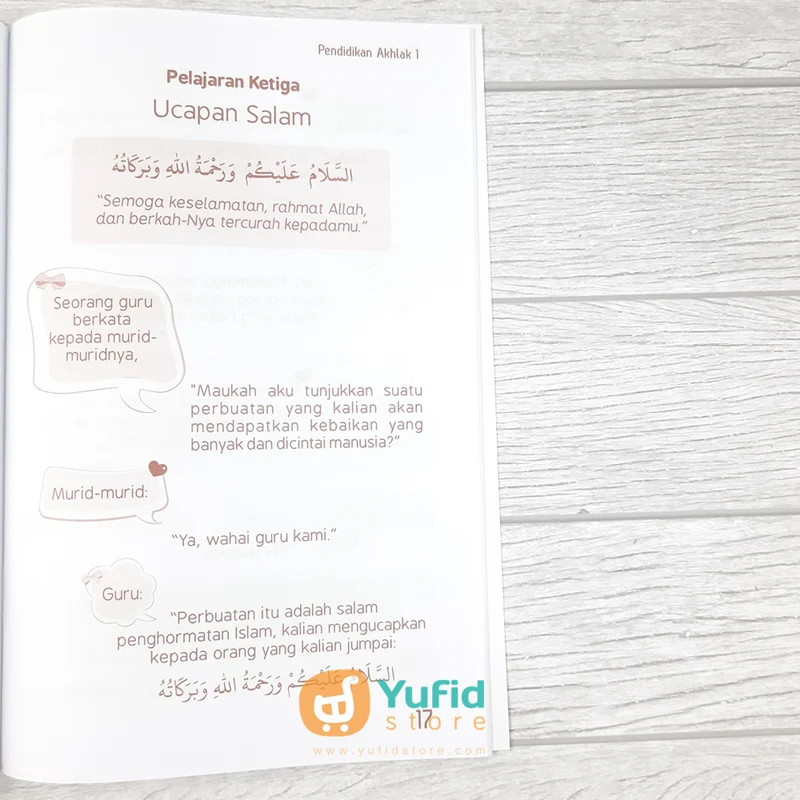 Pendidikan Akhlak 1
Pelajaran Ketiga
Ucapan Salam
السَّلَامُ عَلَيْكُمْ وَرَحْمَةُ اللهِ وَبَرَكَاتُهُ
“Semoga keselamatan, rahmat Allah,
dan berkah-Nya tercurah kepadamu.”
Seorang guru
berkata
kepada murid-
muridnya,
"Maukah aku tunjukkan suatu
perbuatan yang kalian akan
mendapatkan kebaikan yang
banyak dan dicintai manusia?”
Murid-murid:
“Ya, wahai guru kami.”
Guru:
“Perbuatan itu adalah salam
penghormatan Islam, kalian mengucapkan
kepada orang yang kalian jumpai:
السَّلَامُ عَلَيْكُمْ وَرَحْمَةُ اللهِ وَبَرَكَاتُهُ
Yufid
store
17
www.yufidstore.com